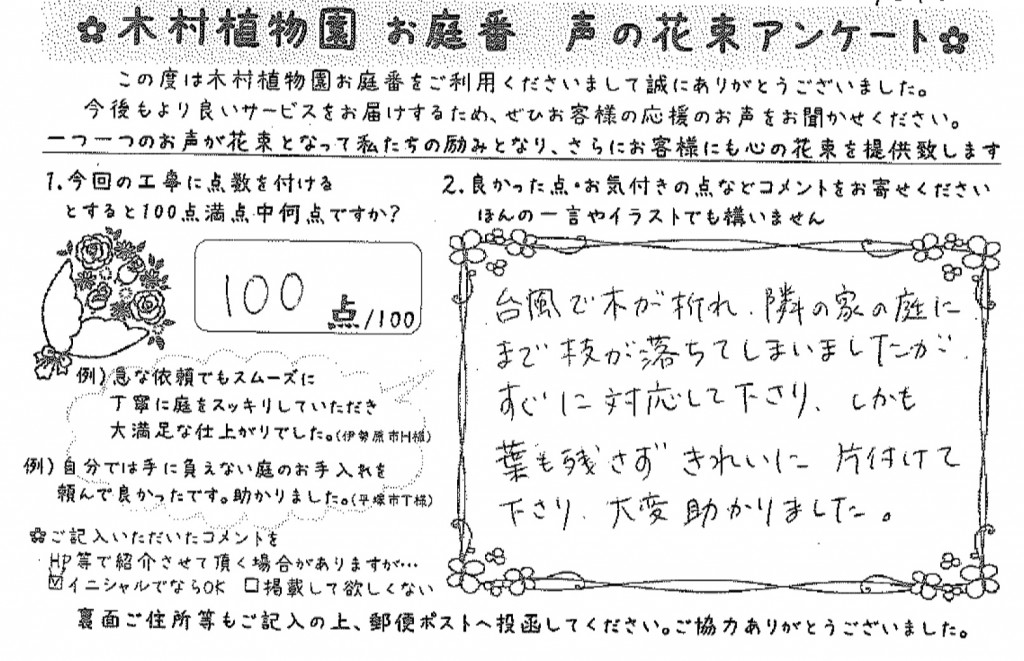 ✿木村植物園 お庭番 声の花束アンケート✿
この度は木村植物園お庭番をご利用くださいまして誠にありがとうございました。
今後もより良いサービスをお届けするため、ぜひお客様の応援のお声をお聞かせください。
一つ一つのお声が花束となって私たちの励みとなり、さらにお客様にも心の花束を提供致します
1.今回の工事に点数を付ける
とすると100点満点中何点ですか?
100 点/100
例)急な依頼でもスムーズに
丁寧に庭をスッキリしていただき
大満足な仕上がりでした。(伊勢原市H様)
例)自分では手に負えない庭のお手入れを
頼んで良かったです。助かりました。(平塚市T様)
✿ご記入いただいたコメントを
HP等で紹介させて頂く場合がありますが…
☑イニシャルでならOK □掲載して欲しくない
2.良かった点・お気付きの点などコメントをお寄せください
ほんの一言やイラストでも構いません
台風で木が折れ、隣の家の庭に
まで枝が落ちてしまいましたが、
すぐに対応して下さり、しかも
葉も残さずきれいに片付けて
下さり、大変助かりました。
裏面ご住所等もご記入の上、郵便ポストへ投函してください。ご協力ありがとうございました。